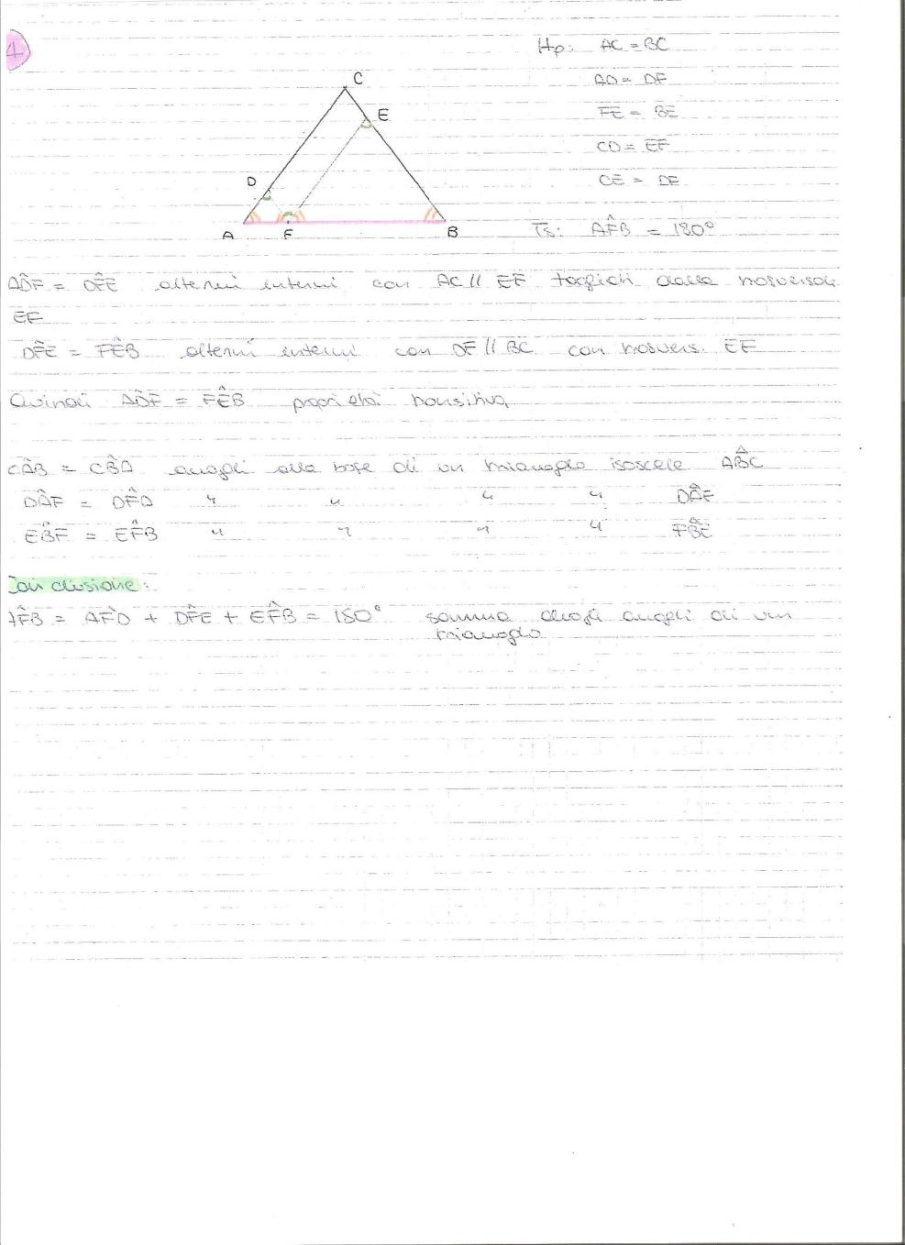 1
Hp: AC = BC
C
AD = DF
E
FE = BE
CD = EF
D
CE = DF
A F B
Ts: AF̂B = 180°
AD̂F = DF̂E alterni interni con AC // EF tagliati dalla trasversale
EF
DF̂E = FÊB alterni interni con DF // BC con trasvers. EF
Quindi AD̂F = FÊB proprietà transitiva
CÂB = CB̂A angoli alla base di un triangolo isoscele ABC
DÂF = DF̂A " " " " DAF
EB̂F = EF̂B " " " " FBE
Conclusione:
AF̂B = AF̂D + DF̂E + EF̂B = 180° somma degli angoli di un
triangolo